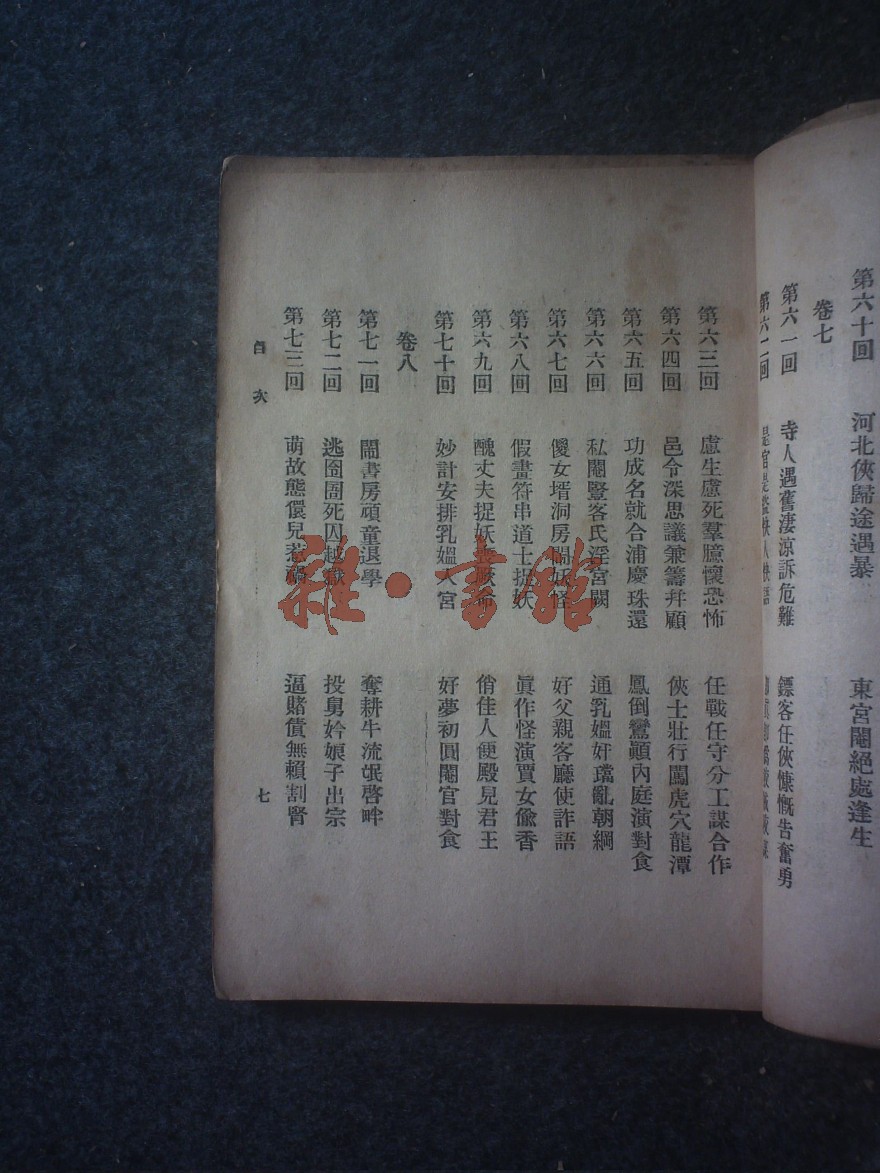 第六十回 河北俠歸途遇暴 東宮閹絕處逢生
卷七
第六一回 寺人遇舊淒涼訴危難 鏢客任俠慷慨告奮勇
第六二回
第六三回 慮生慮死羣臆懷恐怖 任戰任守分工謀合作
第六四回 邑令深思議兼籌幷顧 俠士壯行闖虎穴龍潭
第六五回 功成名就合浦慶珠還 鳳倒鸞顛內庭演對食
第六六回 私閹豎客氏淫宮闕 通乳媼奸璫亂朝綱
第六七回 傻女壻洞房鬧妖怪 好父親客廳使詐語
第六八回 假畫符串道士捉妖 眞作怪演賈女偸香
第六九回 醜丈夫捉妖 俏佳人便殿見君王
第七十回 妙計安排乳媼入宮 好夢初圓閹官對食
卷八
第七一回 鬧書房頑童退學 奪耕牛流氓啓衅
第七二回 逃囹圄死囚越獄 投舅妗娘子出宗
第七三回 萌故態儇兒惹禍 逼賭債無賴割腎
目次
七
雜·書館